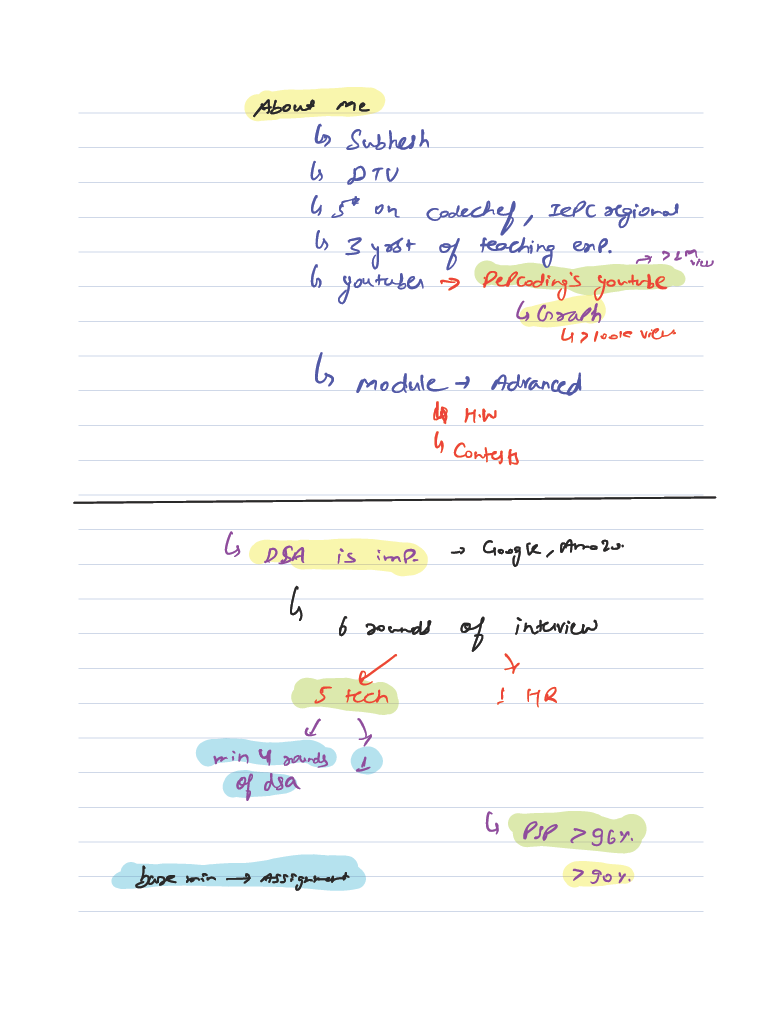 About me
↳ Subhesh
↳ DTU
↳ 5* on codechef, ICPC regional
↳ 3 yrs+ of teaching exp.
↳ youtuber → PepCoding's youtube → >1M view
↳ Graph
↳ >100k view
↳ module → Advanced
↳ H.W
↳ Contests
↳ DSA is imp. → Google, Amazon
↳ 6 rounds of interview
5 tech 1 HR
min 4 rounds of dsa 1
↳ PSP > 96%.
base min → Assignment > 90%.